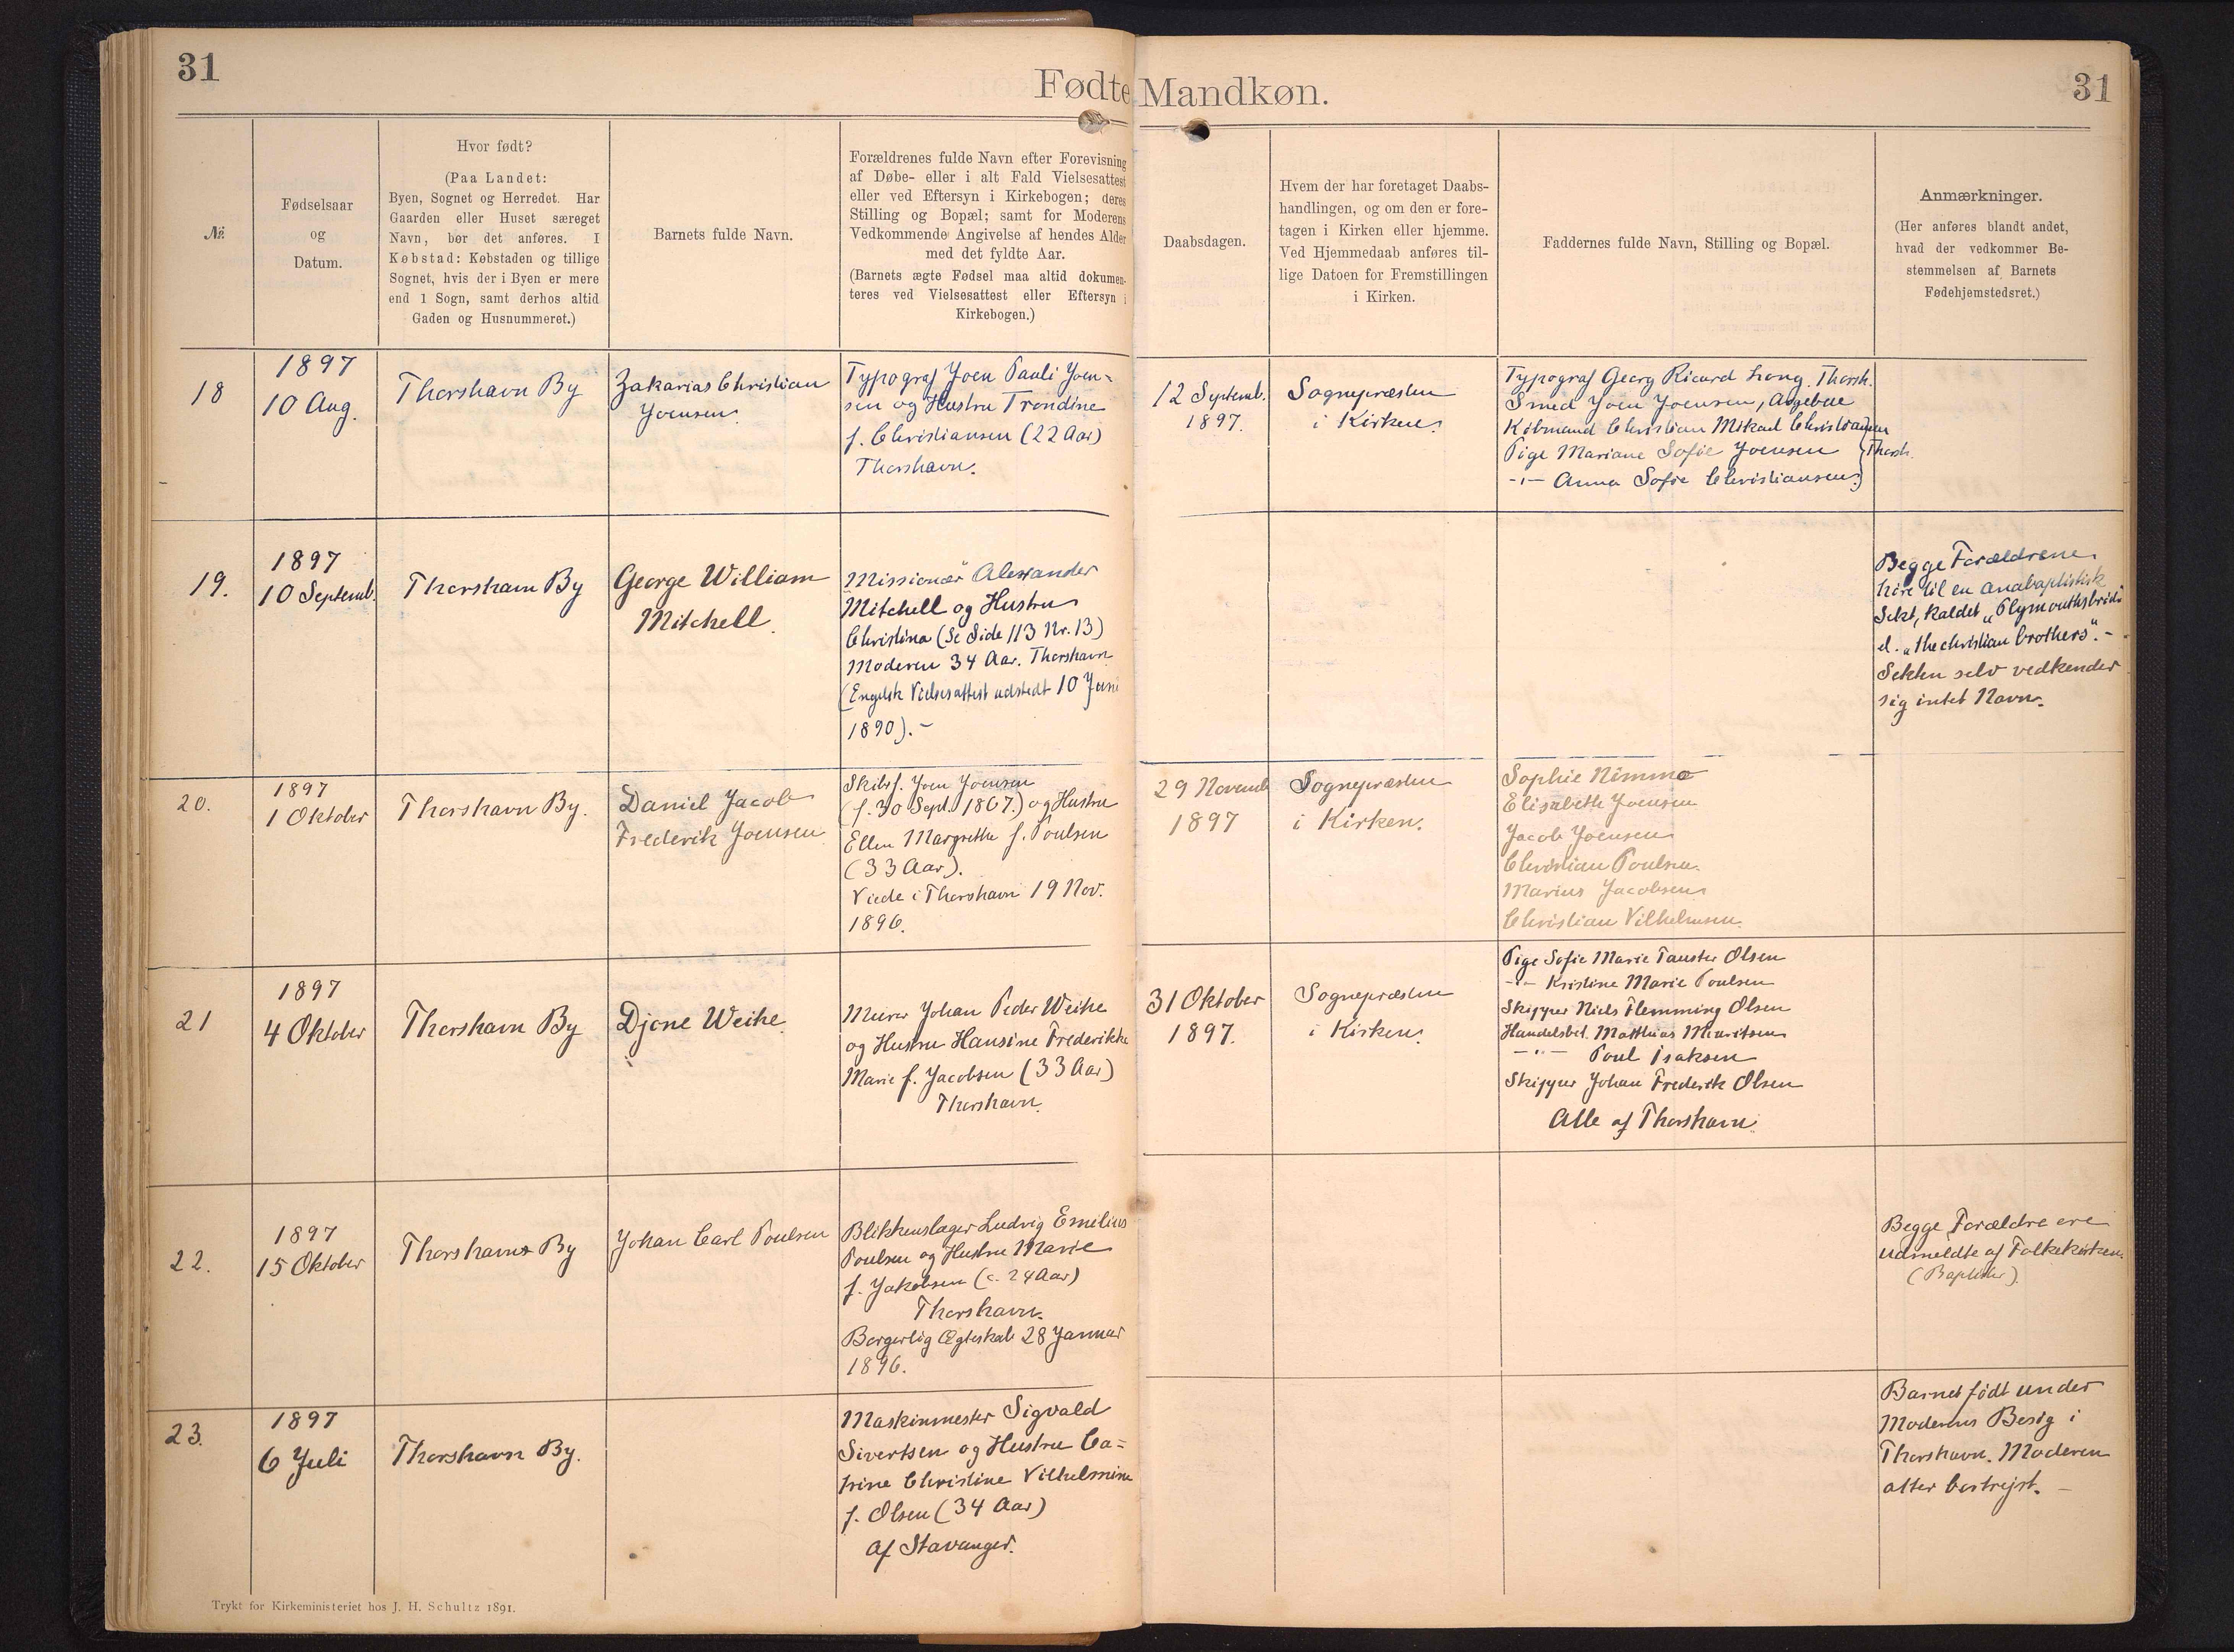 31
Fødte Mandkøn.
31
№
Fødselsaar
og
Datum.
Hvor født?
(Paa Landet:
Byen, Sognet og Herredet. Har
Gaarden eller Huset særeget
Navn, bør det anføres. I
Købstad: Købstaden og tillige
Sognet, hvis der i Byen er mere
end 1 Sogn, samt derhos altid
Gaden og Husnummeret.)
Barnets fulde Navn.
Forældrenes fulde Navn efter Forevisning
af Døbe- eller i alt Fald Vielsesattest
eller ved Eftersyn i Kirkebogen; deres
Stilling og Bopæl; samt for Moderens
Vedkommende Angivelse af hendes Alder
med det fyldte Aar.
(Barnets ægte Fødsel maa altid dokumen-
teres ved Vielsesattest eller Eftersyn i
Kirkebogen.)
Daabsdagen.
Hvem der har foretaget Daabs-
handlingen, og om den er fore-
tagen i Kirken eller hjemme.
Ved Hjemmedaab anføres til-
lige Datoen for Fremstillingen
i Kirken.
Faddernes fulde Navn, Stilling og Bopæl.
Anmærkninger.
(Her anføres blandt andet,
hvad der vedkommer Be-
stemmelsen af Barnets
Fødehjemstedsret.)
18
1897
10 Aug.
Thorshavn By
Zakarias Christian
Joensen.
Typograf Joen Pauli Joen-
sen og Hustru Trondine
f. Christiansen (22 Aar)
Thorshavn.
12 Septemb.
1897.
Sognepræsten
i Kirken.
Typograf Georg Ricard Long. Thorsh.
Smed Joen Joensen, Argebue
Købmand Christian Mikael Christiansen
Pige Mariane Sofie Joensen Thorsh.
-"- Anna Sofie Christiansen.
19.
1897
10 Septemb.
Thorshavn By
George William
Mitchell.
Missionær Alexander
Mitchell og Hustru
Christina (Se Side 113 Nr. 13)
Moderen 34 Aar. Thorshavn
(Engelsk Vielsesattest udstedt 10 Juni
1890).-
Begge Forældrene
høre til en anabaptistisk
Sekt, kaldet „Plymouthsbrødr.
el. „the christian brothers“.-
Sekten selv vedkender
sig intet Navn.
20.
1897
1 Oktober
Thorshavn By.
Daniel Jacob
Frederik Joensen
Skibsf. Joen Joensen
(f. 30 Sept. 1867.) og Hustru
Ellen Margrethe f. Poulsen
(33 Aar).
Viede i Thorshavn 19 Nov.
1896.
29 Novemb
1897
Sognepræsten
i Kirken.
Sophie Nimmo
Elisabeth Joensen
Jacob Joensen
Christian Poulsen.
Marius Jacobsen
Christian Vilhelmsen.
21
1897
4 Oktober
Thorshavn By
Djone Weihe.
Murer Johan Peder Weihe
og Hustru Hansine Frederikke
Marie f. Jacobsen (33 Aar)
Thorshavn.
31 Oktober
1897.
Sognepræsten
i Kirken.
Pige Sofie Marie Tauster Olsen
-"- Kristine Marie Poulsen
Skipper Niels Flemming Olsen
Handelsbet. Matthias Mouritsen
-"- Poul Isaksen
Skipper Johan Frederik Olsen
Alle af Thorshavn.
22.
1897
15 Oktober
Thorshavns By
Johan Carl Poulsen
Blikkenslager Ludvig Emilius
Poulsen og Hustru Marie
f. Jakobsen (c. 24 Aar)
Thorshavn.
Borgerlig Ægteskab 28 Januar
1896.
Begge Forældre ere
udmeldte af Folkekirken.
(Baptister).
23.
1897
6 Juli
Thorshavn By.
Maskinmester Sigvald
Sivertsen og Hustru Ca-
trine Christine Vilhelmine
f. Olsen (34 Aar)
af Stavanger.
Barnet født under
Moderens Besøg i
Thorshavn. Moderen
atter bortrejst. -
Trykt for Kirkeministeriet hos J. H. Schultz 1891.